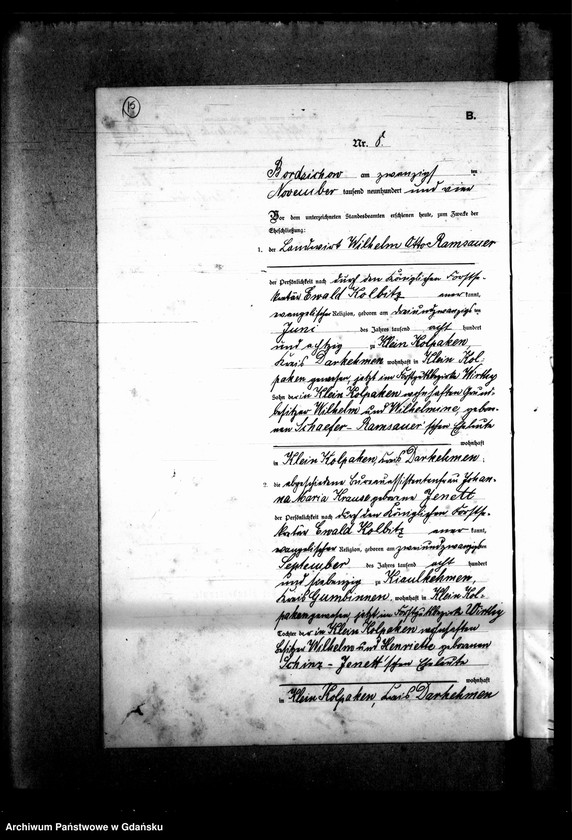 15
B.
Nr. 8.
Bordzichow am zwanzigsten
November tausend neunhundert und vier
Vor dem unterzeichneten Standesbeamten erschienen heute, zum Zwecke der
Eheschließung:
1. der Landwirt Wilhelm Otto Ramsauer
der Persönlichkeit nach durch den Königlichen Forstse-
kretär Ewald Kolbitz anerkannt,
evangelischer Religion, geboren am dreiundzwanzigsten
Juni des Jahres tausend acht hundert
und achtzig zu Klein Kolpaken
Kreis Darkehmen wohnhaft in Klein Kol-
paken gewesen, jetzt im Forstgutsbezirk Wirthy
Sohn der in Klein Kolpaken wohnhaften Grund-
besitzer Wilhelm und Wilhelmine, gebor-
nen Schaefer - Ramsauer'schen Eheleute
wohnhaft
in Klein Kolpaken, Kreis Darkehmen.
2. die abgeschiedene Bureauassistentenfrau Johan-
na Maria Krause geborene Jenett
der Persönlichkeit nach durch den Königlichen Forstse-
kretär Ewald Kolbitz anerkannt,
evangelischer Religion, geboren am zweiundzwanzigsten
September des Jahres tausend acht hundert
und siebenzig zu Kiaulkehmen,
Kreis Gumbinnen, wohnhaft in Klein Kol-
paken gewesen, jetzt im Forstgutsbezirk Wirthy
Tochter der in Klein Kolpaken wohnhaften
Besitzer Wilhelm und Henriette geborenen
Schinz - Jenett'schen Eheleute
wohnhaft
in Klein Kolpaken, Kreis Darkehmen
Archiwum Państwowe w Gdańsku